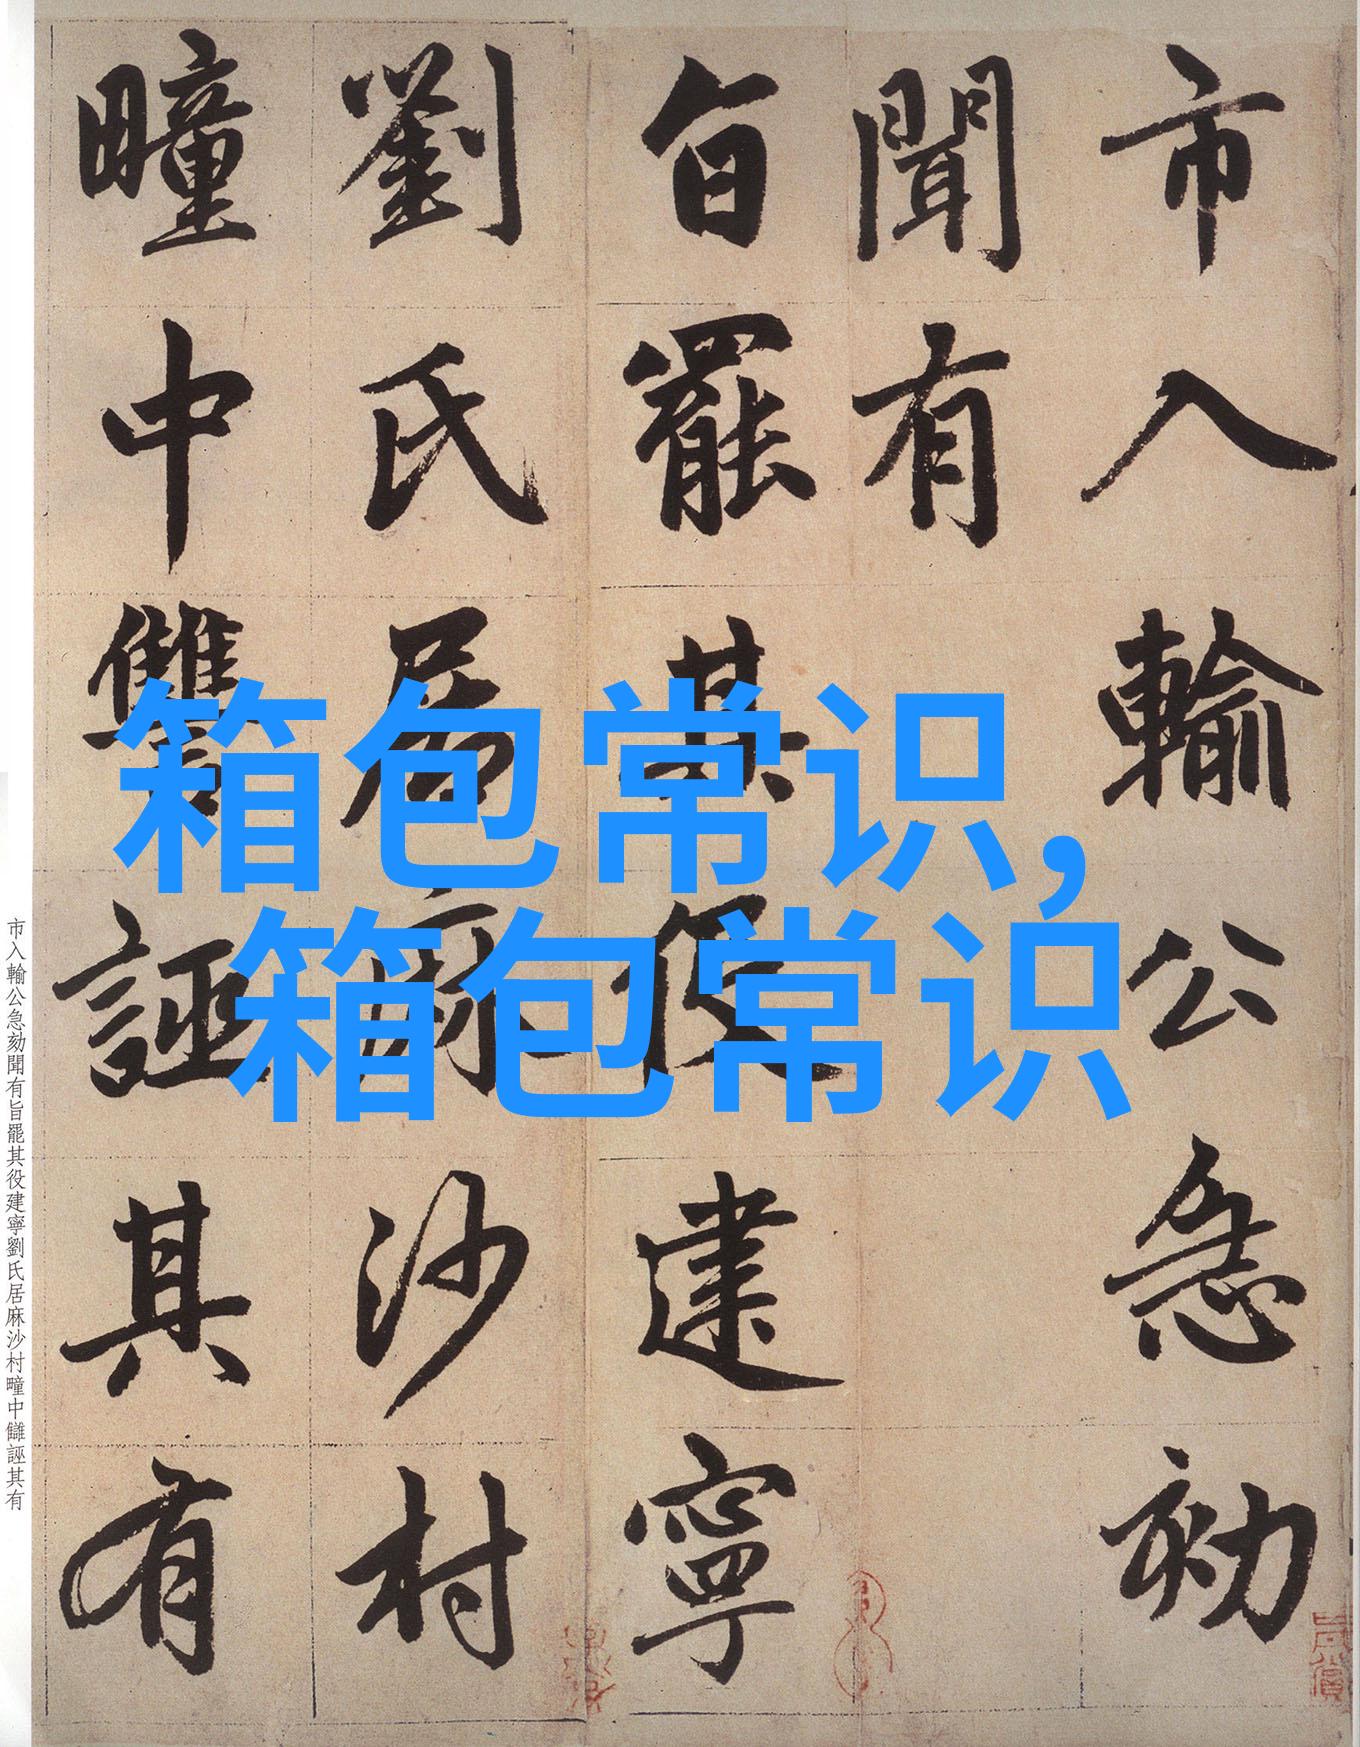 市入輸公急劾
聞有
旨罷其役建寧
劉氏居麻沙村
疃中讎誣其有
箱包常识,
箱包常识
市入輸公急劾聞有旨罷其役建寧劉氏居麻沙村疃中讎誣其有